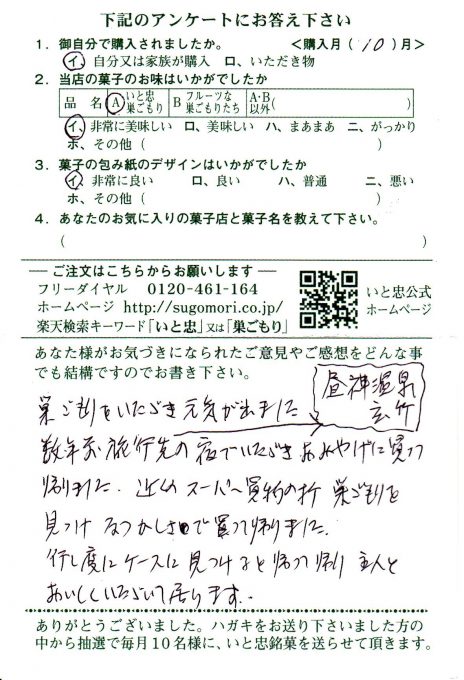 下記のアンケートにお答え下さい
1．御自分で購入されましたか。 ＜購入月（10）月＞
イ、自分又は家族が購入 ロ、いただき物
2．当店の菓子のお味はいかがでしたか
品 名 A いと忠巣ごもり B フルーツな巣ごもりたち A･B以外（ ）
イ、非常に美味しい ロ、美味しい ハ、まあまあ ニ、がっかり
ホ、その他（ ）
3．菓子の包み紙のデザインはいかがでしたか
イ、非常に良い ロ、良い ハ、普通 ニ、悪い
ホ、その他（ ）
4．あなたのお気に入りの菓子店と菓子名を教えて下さい。
（ ）
ご注文はこちらからお願いします
フリーダイヤル 0120-461-164
ホームページ http://sugomori.co.jp/
楽天検索キーワード「いと忠」又は「巣ごもり」
いと忠公式
ホームページ
あなた様がお気づきになられたご意見やご感想をどんな事
でも結構ですのでお書き下さい。
昼神温泉
玄竹
巣ごもりをいただき元気が出ました
数年前旅行先の宿でいただきおみやげに買って
帰りました．近くのスーパー買物の折 巣ごもりを
見つけ なつかしさで買って帰りました．
行く度にケースに見つけると買って帰り 主人と
おいしくいただいて居ります．
ありがとうございました。ハガキをお送り下さいました方の
中から抽選で毎月10名様に、いと忠銘菓を送らせて頂きます。